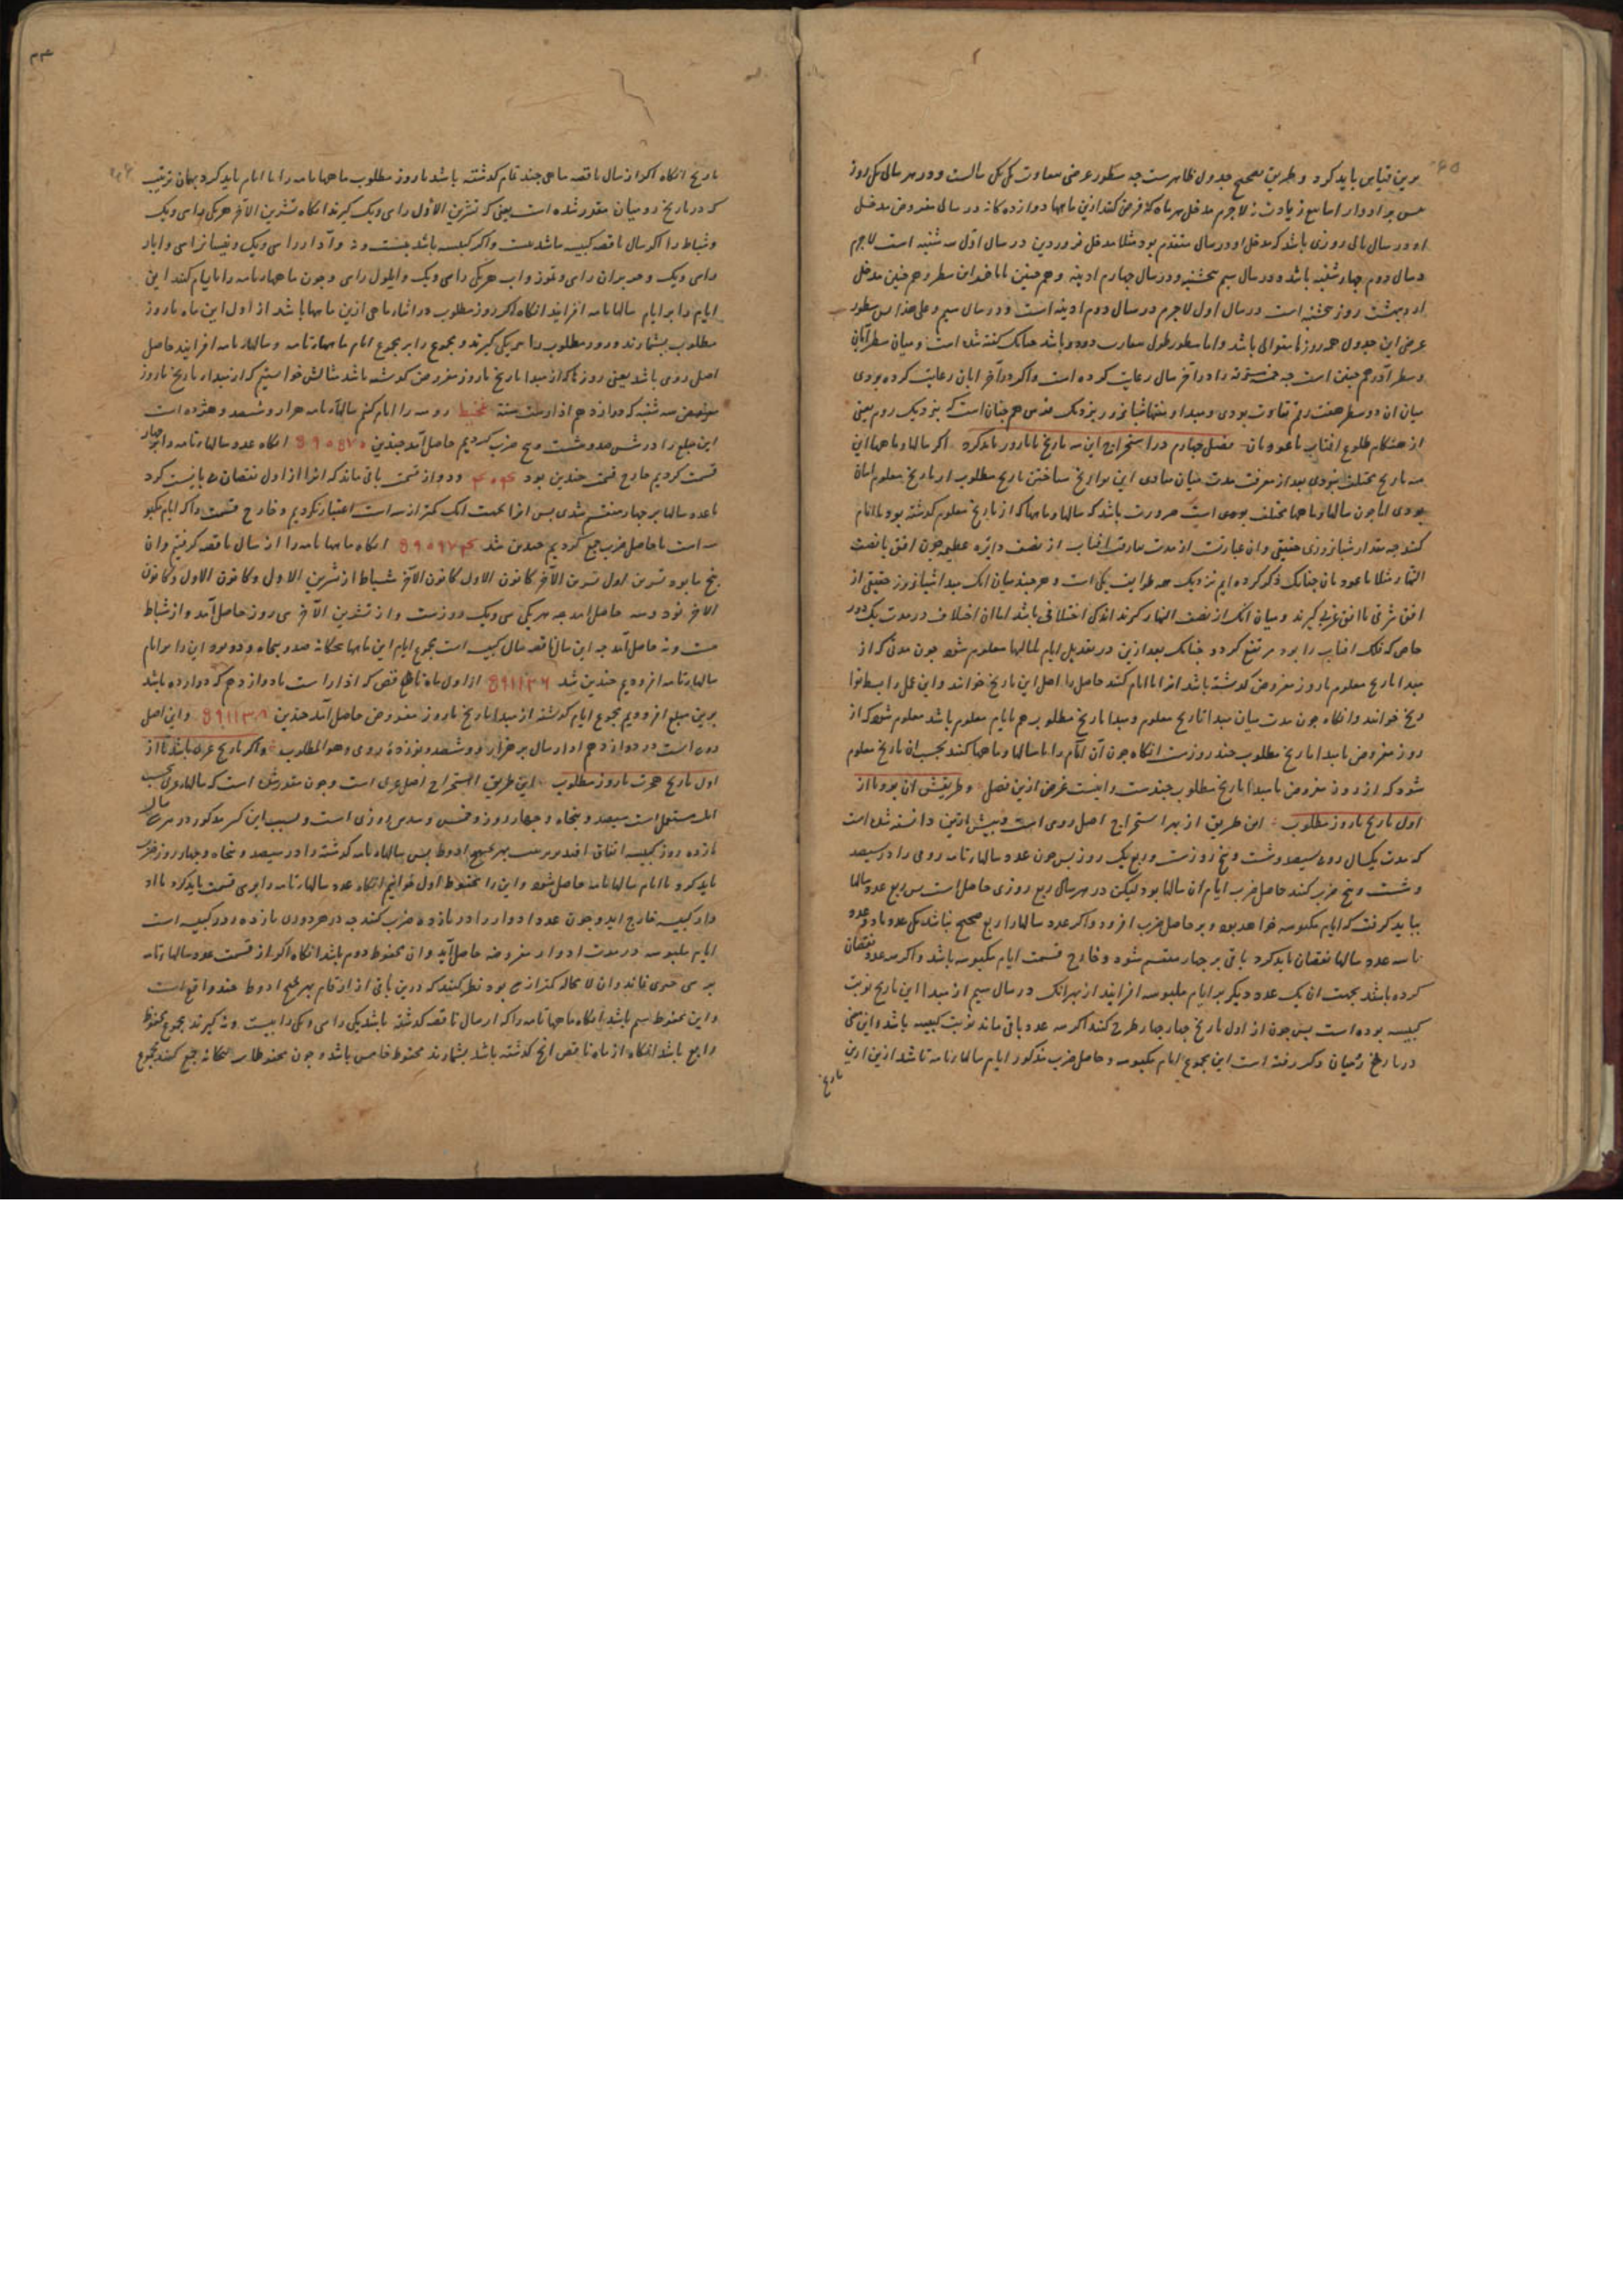 برین قیاس باید کرد و طریق تصحیح جدول ظاهرست چه سطور عرضی یک یک سالست و در هر سالی یک روز
بر ادوار اسابیع زیادت لاجرم مدخل هر ماه که فرض کنند ازین ماهها دوازده کانه در سالی مفروض مدخل
او در سال تالی روزی باشد که مدخل او در سال متقدم بود مثلا مدخل فروردین در سال اول سه شنبه است لاجرم
در سال دوم چهارشنبه باشد و در سال سیم پنجشنبه و در سال چهارم ادینه و همچنین تا باخر این سطر و همچنین مدخل
اردیبهشت روز پنجشنبه است در سال اول لاجرم در سال دوم ادینه است و در سال سیم و علی هذا پس سطور
عرضی این جدول همه روزها متوالی باشد و اما سطور طول دو دو باشد چنانک گفته شد است و میان سطر آبان
و سطر آذر همچنین است چه خمسه مسترقه را در آخر سال رعایت کرده است و اگر در آخر ابان رعایت کرده بودی
میان ان دو سطر هفت رقم تفاوت بودی و مبدا و منتها شبانروز نزدیک فرس هم چنان است که بنزدیک روم یعنی
از هنگام طلوع افتاب تا عود بان فصل چهارم در استخراج این سه تاریخ تا باید کرد اگر سالها و ماهها این
سه تاریخ مختلف نبودی بعد از معرفت مدت میان مبادی این تواریخ ساختن تاریخ مطلوب از تاریخ معلوم اسان
بودی اما چون سالها و ماهها مختلف بودی است ضرورت باشد که سالها و ماهها که از تاریخ معلوم گذشته بود با ایام
کنند چه مقدار شبانروزی حقیقی و ان عبارتست از مدت مفارقت افتاب از نصف دایره عظیمه چون افق یا نصف
النهار مثلا تا عود بان چنانک ذکر کرده ایم نزدیک همه طوایف یکی است و هر چند میان انک مبدا شبانروز حقیقی از
افق شرقی یا افق غربی گیرند و میان انک از نصف النهار گیرند اندکی اختلافی باشد اما ان اختلاف در مدت یک دور
خاص که فلک افتاب را بود مرتفع گردد چنانک بعد ازین در تعدیل ایام بلیالیها معلوم شود چون مدتی که از
مبدا تاریخ معلوم تا روز مفروض گذشته باشد انرا با ایام کنند حاصل را اصل این تاریخ خوانند و این عمل را بسط
تاریخ خوانند و انگاه چون مدت میان مبدا تاریخ معلوم و مبدا تاریخ مطلوب هم بایام معلوم باشد معلوم شود که از
روز مفروض تا مبدا تاریخ مطلوب چند روزست انگاه چون آن ایام را با سالها و ماهها کنند بحسب ان تاریخ معلوم
شود که از روز مفروض تا مبدا تاریخ مطلوب چندست و اینست غرض ازین فصل و طریقش ان بود تا از
اول تاریخ تا روز مطلوب این طریق از بهر استخراج اصل رومی است و پیش ازین دانسته شد است
که مدت یکسال رومی سیصد و شصت و پنج روزست و ربع یک روز پس چون عدد سالها تامه رومی را در سیصد
و شصت و پنج ضرب کنند حاصل ضرب ایام ان سالها بود لیکن در هر سال ربع روزی حاصل است پس ربع عدد سالها
بباید گرفت که ایام مکبوسه خواهد بود و بر حاصل ضرب افزود و اگر عدد سالها را ربع صحیح نباشد یک عدد یا دو عدد
یا سه عدد از سالها نقصان باید کرد تا باقی بر چهار منقسم شود و خارج قسمت ایام مکبوسه باشد و اگر سه عدد نقصان
کرده باشد بجهت ان یک عدد دیگر بر ایام مکبوسه افزایند از بهر انک در سال سیم از مبدا این تاریخ نوبت
کبیسه بوده است پس چون از اول تاریخ چهار چهار طرح کنند اگر سه عدد باقی ماند نوبت کبیسه باشد و این سخن
در تاریخ رومیان ذکر رفته است این مجموع ایام مکبوسه و حاصل ضرب مذکور ایام سالها تامه باشد ازین
تاریخ
تاریخ انگاه اگر از سال ناقصه ماهی چند تمام گذشته باشد تا روز مطلوب ماهها تامه را با ایام باید کرد بهمان ترتیب
که در تاریخ رومیان مقرر شده است یعنی که تشرین الاول را سی و یک گیرند انگاه تشرین الآخر سی و یک
و شباط را اگر سال ناقصه کبیسه باشد بیست و اگر کبیسه باشد بیست و نه و آذار را سی و یک و نیسان را سی و ایار
را سی و یک و حزیران را سی و تموز و اب هر یکی را سی و یک و ایلول را سی و چون ماهها تامه را با ایام کنند این
ایام را بر ایام سالها تامه افزایند انگاه اگر روز مطلوب در اثناء ماهی ازین ماهها باشد از اول این ماه تا روز
مطلوب بشمارند و روز مطلوب را یکی گیرند و مجموع را بر مجموع ایام ماهها تامه و سالها تامه افزایند حاصل
اصل رومی باشد یعنی روزها که از مبدا تاریخ تا روز مفروض گذشته باشد مثالش خواستیم که از مبدا تاریخ تا روز
مفروض سه شنبه که دوازدهم اذارست سنه غخیط رومیه را ایام کنیم سالها تامه هزار و ششصد و هژده است
این مبلغ را در سیصد و شصت و پنج ضرب کردیم حاصل آمد چندین ۵۹۰۵۷۰ انگاه عدد سالها تامه را بر چهار
قسمت کردیم خارج قسمت چندین بود ۴۰۴ و دو از قسمت باقی ماند که انرا از اول نقصان می بایست کرد
تا عدد سالها بر چهار منقسم شدی پس انرا بجهت انک کمتر از سه است اعتبار نکردیم و خارج قسمت را که ایام مکبو
سه است با حاصل ضرب جمع کردیم چندین شد ۵۹۰۹۷۴ انگاه ماهها تامه را از سال ناقصه گرفتیم و ان
پنج ماه بود تشرین اول تشرین الآخر کانون الاول کانون الآخر شباط از تشرین الاول و کانون الاول و کانون
الاخر نود و سه حاصل امد چه هر یکی سی و یک روزست و از تشرین الآخر سی روز حاصل آمد و از شباط
بیست و نه حاصل آمد چه این سال ناقصه سال کبیسه است مجموع ایام این ماهها پنجگانه صد و پنجاه و دو بود این را بر ایام
سالها تامه افزودیم چندین شد ۵۹۱۱۲۶ از اول ماه ناقص که اذارست تا دوازدهم که دوازده باشد
برین مبلغ افزودیم مجموع ایام گذشته از مبدا تاریخ تا روز مفروض حاصل آمد چندین ۵۹۱۱۳۸ و این اصل
رومی است در دوازدهم اذار سال بر هزار و ششصد و نوزده رومی و هو المطلوب و اگر تاریخ عربی باشد تا از
اول تاریخ هجرت تا روز مطلوب این طریق استخراج اصل عربی است و چون مقرر شد است که سالها عربی بحسب
امر مستعمل است سیصد و پنجاه و چهار روز و خمس و سدس روزی است و بسبب این کسر مذکور در هر سی سال
یازده روز کبیسه اتفاق افتد بر ترتیب بهزیجح ادوط پس سالها تامه گذشته را در سیصد و پنجاه و چهار روز ضرب
باید کرد تا ایام سالها تامه حاصل شود و این را محفوظ اول خوانیم انگاه عدد سالها تامه را بر سی قسمت باید کرد تا اد
وار کبیسه خارج اید و چون عدد ادوار را در یازده ضرب کنند چه در هر دوری یازده روز کبیسه است
ایام مکبوسه در مدت ادوار مفروضه حاصل آید و ان محفوظ دوم باشد انگاه اگر از قسمت عدد سالها تامه
بر سی چیزی بماند و ان لا محاله کمتر از سی بود نظر کنند که درین باقی از ارقام بهزیجح ادوط چند واقع است
و این محفوظ سیم باشد انگاه ماهها تامه را که از سال ناقصه گذشته باشد یکی را سی و یکی را بیست و نه گیرند مجموع محفوظ
رابع باشد انگاه از ماه ناقص انچ گذشته باشد بشمارند محفوظ خامس باشد و چون محفوظات پنجگانه جمع کنند مجموع